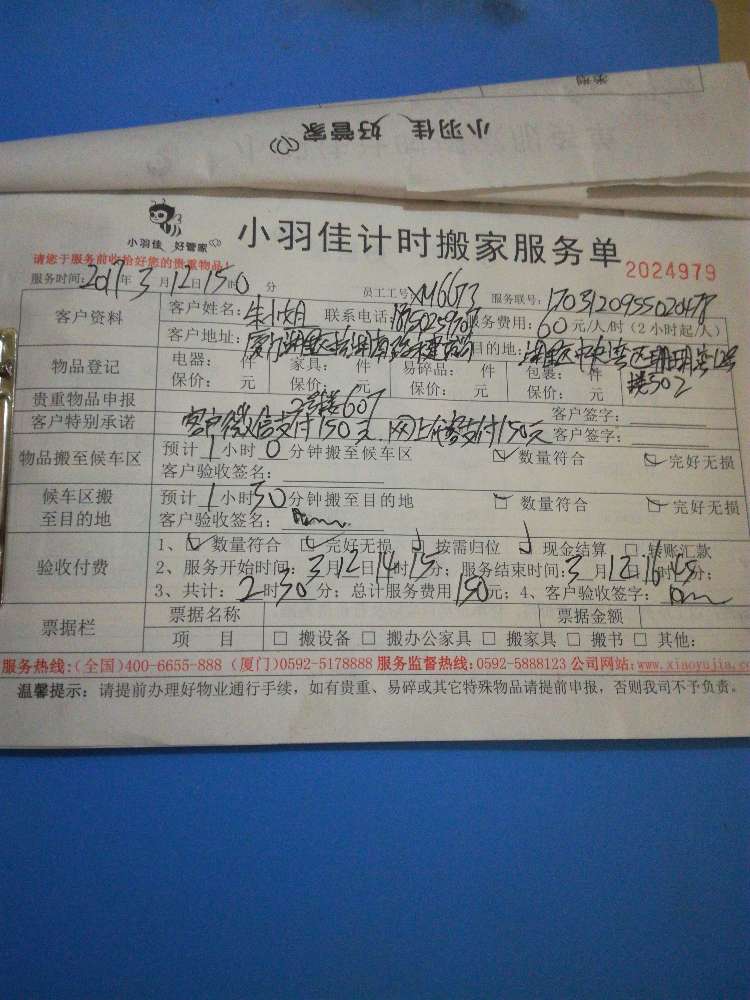 小羽佳 好管家
小羽佳 好管家
小羽佳计时搬家服务单
2024979
请您于服务前收拾好您的贵重物品!
服务时间: 2017年3月12日15时0分 员工工号 XM6673 服务联号: 1703120955020478
客户资料
客户姓名: 朱小姐 联系电话: 服务费用: 60元/人/时(2小时起/人)
客户地址: 厦门湖里区 目的地: 湖里区中央湾区珊瑚湾12号楼502
2号楼607
物品登记
电器: 件 家具: 件 易碎品: 件 包裹: 件
保价: 元 保价: 元 保价: 元 保价: 元
贵重物品申报 客户签字:
客户特别承诺 客户微信支付150元, 网上代客支付150元 客户签字:
物品搬至候车区 预计1小时0分钟搬至候车区 数量符合 完好无损
客户验收签名:
候车区搬至目的地 预计1小时30分钟搬至目的地 数量符合 完好无损
客户验收签名:
验收付费
1、数量符合 完好无损 按需归位 现金结算 转账汇款
2、服务开始时间: 3月12日14时15分; 服务结束时间: 3月12日16时45分;
3、共计: 2时30分; 总计服务费用150元; 4、客户验收签字:
票据栏 票据名称 票据金额
项 目 □ 搬设备 □ 搬办公家具 □ 搬家具 □ 搬书 □ 其他:
服务热线:(全国)400-6655-888 (厦门)0592-5178888 服务监督热线:0592-5888123 公司网站:www.xiaoyujia.c
温馨提示: 请提前办理好物业通行手续, 如有贵重、易碎或其它特殊物品请提前申报, 否则我司不予负责。